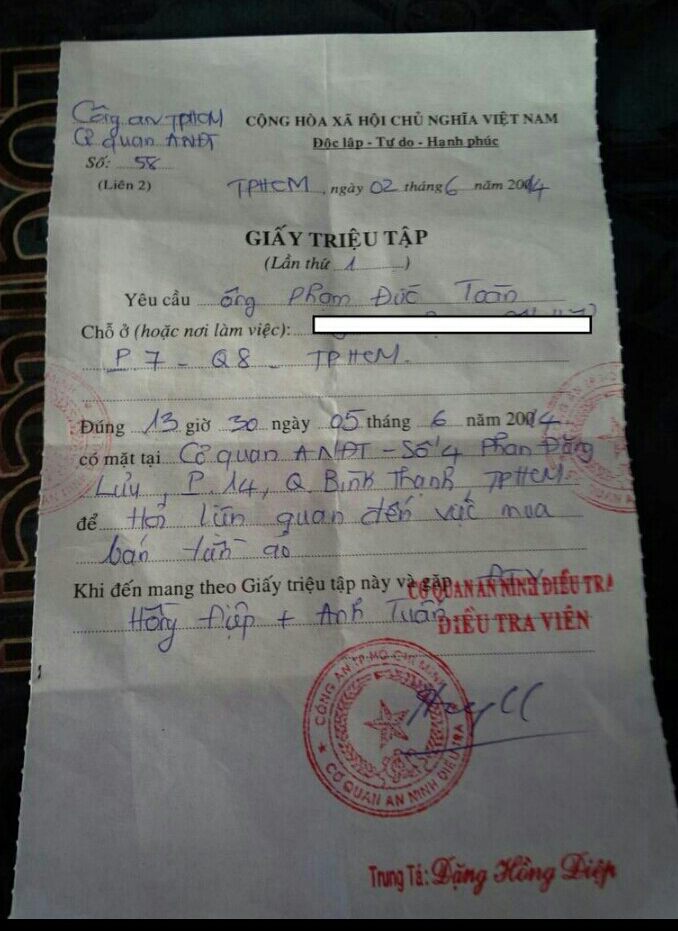 Công an TPHCM
CỘNG HÒA XÃ HỘI CHỦ NGHĨA VIỆT NAM
Cơ quan ANĐT
Độc lập - Tự do - Hạnh phúc
Số: 58
(Liên 2)
TPHCM, ngày 02 tháng 6 năm 2014
GIẤY TRIỆU TẬP
(Lần thứ 1)
Yêu cầu ông Phạm Đức Toàn
Chỗ ở (hoặc nơi làm việc):
P 7 - Q8 - TPHCM.
Đúng 13 giờ 30 ngày 05 tháng 6 năm 2014
có mặt tại Cơ quan ANĐT - Số 4 Phan Đăng
Lưu, P.14, Q. Bình Thạnh TPHCM
để Hỏi liên quan đến việc mua
bán tiền ảo
Khi đến mang theo Giấy triệu tập này và gặp ĐTV
Hồng Điệp + Anh Tuấn
CƠ QUAN AN NINH ĐIỀU TRA
ĐIỀU TRA VIÊN
CÔNG AN TP.HỒ CHÍ MINH
CƠ QUAN AN NINH ĐIỀU TRA
Trung Tá: Đặng Hồng Điệp